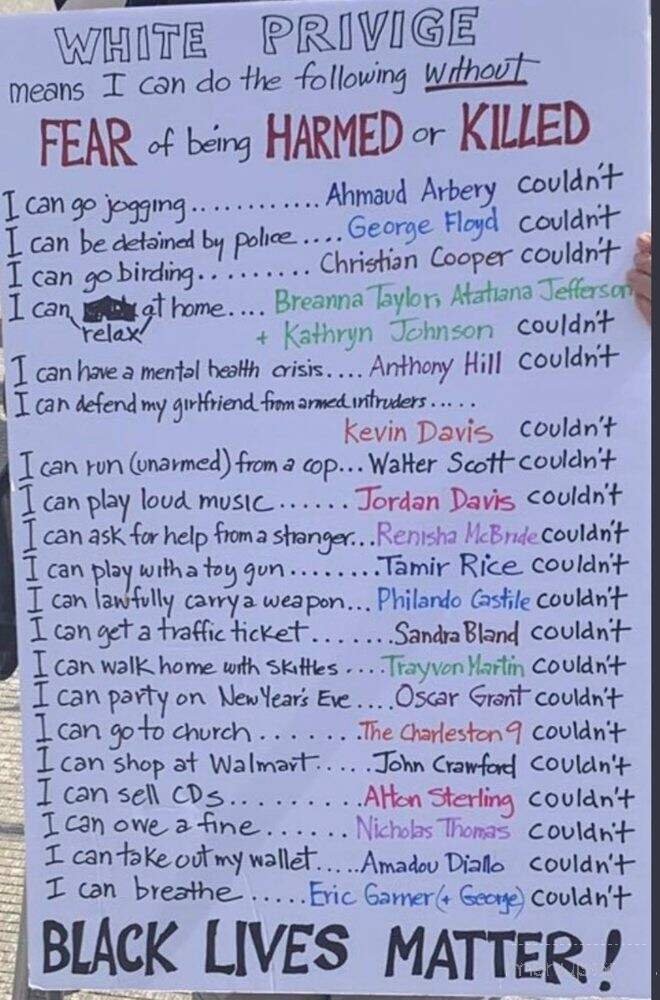 WHITE PRIVIGE
means I can do the following without
FEAR of being HARMED or KILLED
I can go jogging............ Ahmaud Arbery couldn't
I can be detained by police .... George Floyd couldn't
I can go birding......... Christian Cooper couldn't
I can at home.... Breanna Taylor, Atatiana Jefferson
relax + Kathryn Johnson couldn't
I can have a mental health crisis.... Anthony Hill couldn't
I can defend my girlfriend from armed intruders.....
Kevin Davis couldn't
I can run (unarmed) from a cop... Walter Scott couldn't
I can play loud music...... Jordan Davis couldn't
I can ask for help from a stranger... Renisha McBride couldn't
I can play with a toy gun........ Tamir Rice couldn't
I can lawfully carry a weapon... Philando Castile couldn't
I can get a traffic ticket....... Sandra Bland couldn't
I can walk home with skittles .... Trayvon Martin couldn't
I can party on New Year's Eve .... Oscar Grant couldn't
I can go to church ....... The Charleston 9 couldn't
I can shop at Walmart..... John Crawford couldn't
I can sell CDs......... Alton Sterling couldn't
I can owe a fine....... Nicholas Thomas couldn't
I can take out my wallet..... Amadou Diallo couldn't
I can breathe ..... Eric Garner (+ George) couldn't
BLACK LIVES MATTER!